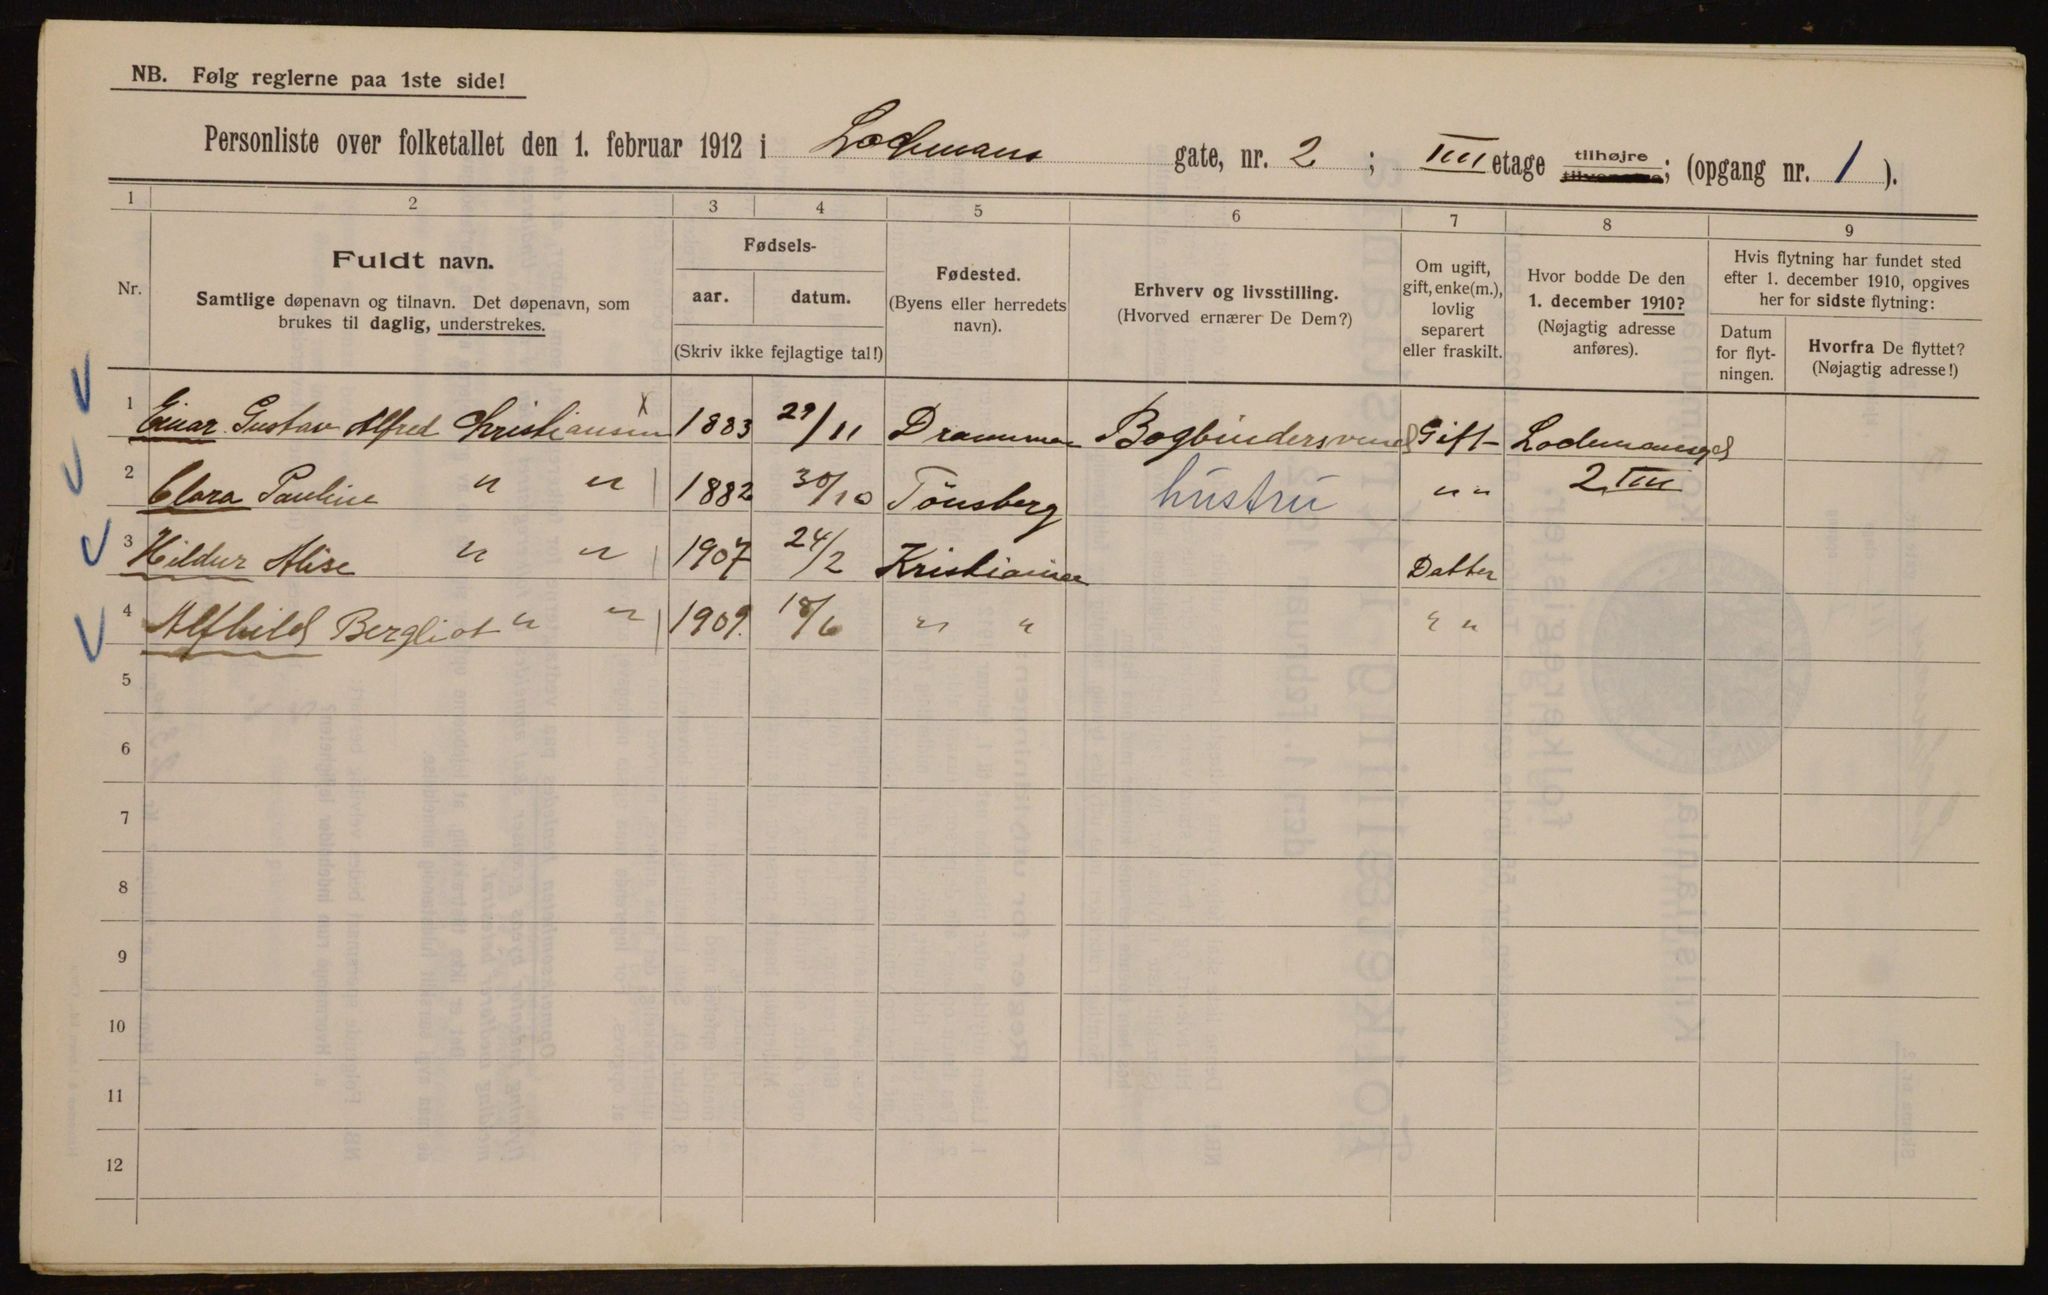 NB. Følg reglerne paa 1ste side!
Personliste over folketallet den 1. februar 1912 i Lodemans gate, nr. 2 ; IIII etage tilhøjre tilvenstre; (opgang nr. 1 ).
1 2 3 4 5 6 7 8 9
Nr.
Fuldt navn.
Samtlige døpenavn og tilnavn. Det døpenavn, som
brukes til daglig, understrekes.
Fødsels-
aar. datum.
(Skriv ikke fejlagtige tal!)
Fødested.
(Byens eller herredets
navn).
Erhverv og livsstilling.
(Hvorved ernærer De Dem?)
Om ugift,
gift, enke(m.),
lovlig
separert
eller fraskilt.
Hvor bodde De den
1. december 1910?
(Nøjagtig adresse
anføres).
Hvis flytning har fundet sted
efter 1. december 1910, opgives
her for sidste flytning:
Datum
for flyt-
ningen.
Hvorfra De flyttet?
(Nøjagtig adresse!)
1 Einar Gustav Alfred Christiansen x 1883 29/11 Drammen Bogbindersvend Gift Lodemansgd
2 Clara Pauline " " 1882 30/10 Tönsberg hustru " " 2 IIII
3 Hildur Alise " " 1907 24/2 Kristiania Datter
4 Alfhild Bergliot " " 1909. 18/6 " " " "
5
6
7
8
9
10
11
12